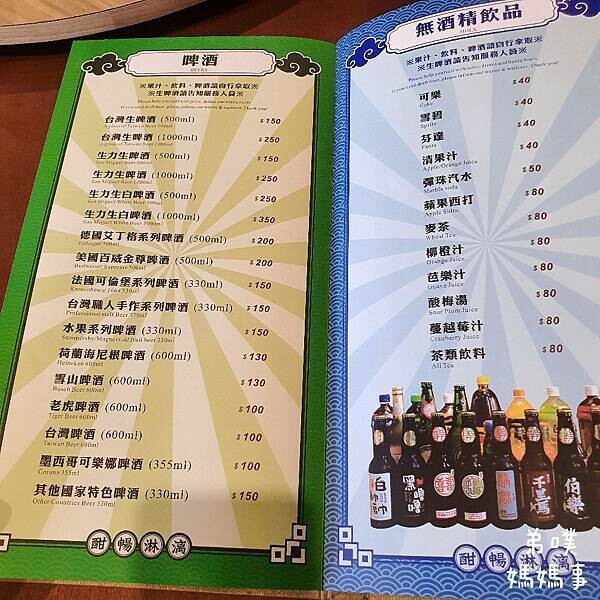 啤酒
BEERS
※果汁、飲料、啤酒請自行拿取※
※生啤酒請告知服務人員※
Please help yourself with juice, drinks and bottle beers
台灣生啤酒 (500ml) $150
A glass of Taiwan Beer 500ml
台灣生啤酒 (1000ml) $250
生力生啤酒 (500ml) $150
San Miguel Beer 500ml
生力生啤酒 (1000ml) $250
San Miguel Beer 1000ml
生力生白啤酒 (500ml) $250
San Miguel White Beer 500ml
生力生白啤酒 (1000ml) $350
San Miguel White Beer 1000ml
德國艾丁格系列啤酒 (500ml) $200
Erdinger 500ml
美國百威金尊啤酒 (500ml) $200
Budweiser Supreme 500ml
法國可倫堡系列啤酒 (330ml) $150
台灣職人手作系列啤酒 (330ml) $150
水果系列啤酒 (330ml) $150
荷蘭海尼根啤酒 (600ml) $130
Heineken 600ml
雪山啤酒 (600ml) $130
Busch Beer 600ml
老虎啤酒 (600ml) $100
Tiger Beer 600ml
台灣啤酒 (600ml) $100
Taiwan Beer 600ml
墨西哥可樂娜啤酒 (355ml) $100
Corona 355ml
其他國家特色啤酒 (330ml) $150
Other Countries Beer 330ml
酣暢淋漓
無酒精飲品
JUICE
※果汁、飲料、啤酒請自行拿取※
※生啤酒請告知服務人員※
Please help yourself with juice, drinks and bottle beers
可樂 $40
Coke
雪碧 $40
Sprite
芬達 $40
Fanta
清果汁 $40
Apple/Orange Juice
彈珠汽水 $50
Marble soda
蘋果西打 $80
Apple Sidra
麥茶 $80
Wheat Tea
柳橙汁 $80
Orange Juice
芭樂汁 $80
Guave Juice
酸梅湯 $80
Sour Plum Juice
蔓越莓汁 $80
Cranberry Juice
茶類飲料 $80
All Tea
千里馬
伯樂
酣暢淋漓
弟噗
媽媽事